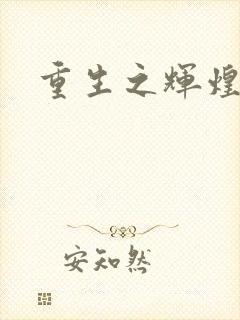 重生之辉煌
安知然